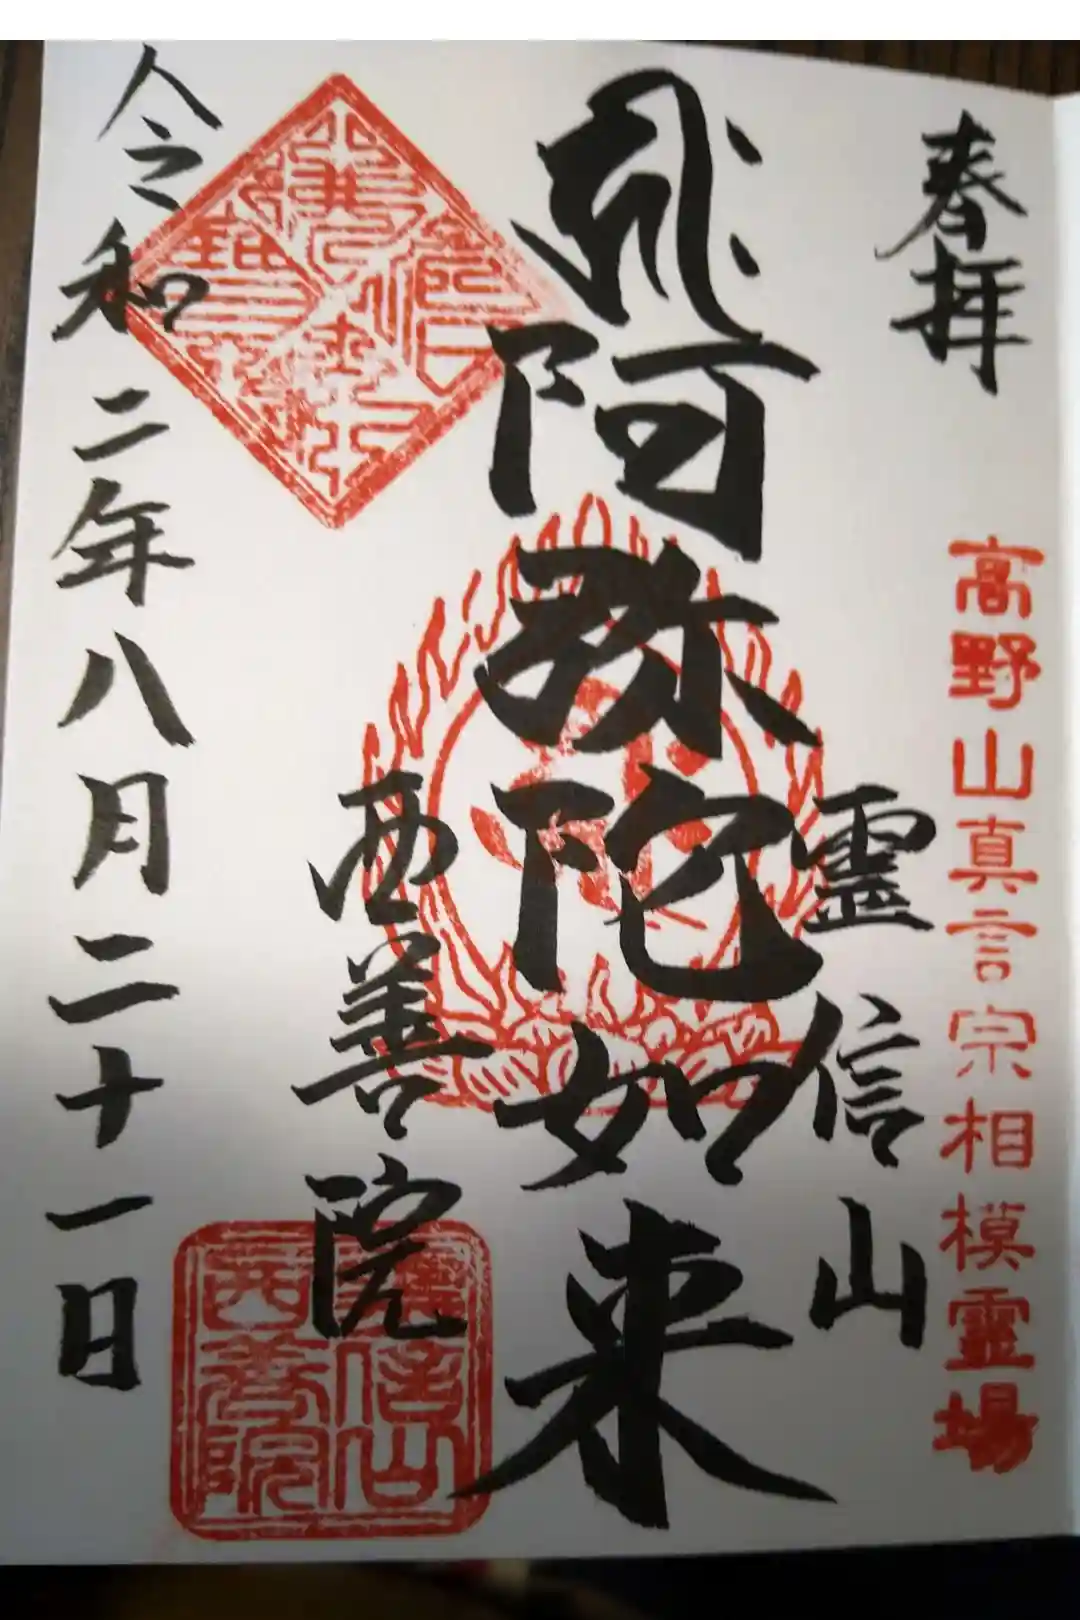 奉拝
高野山真言宗相模霊場
霊信山
阿弥陀如来
西善院
霊信山
西善院
令和二年八月二十一日